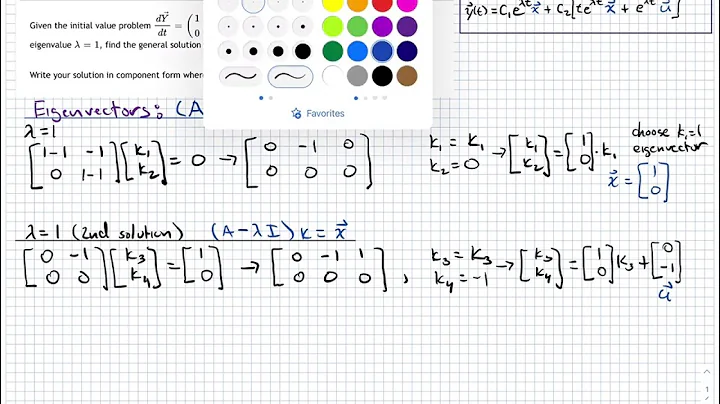 Given the initial value problem dY⃗/dt = (1 0
eigenvalue λ = 1, find the general solution
Write your solution in component form wher
y⃗(t) = C₁e^λt x⃗ + C₂[te^λt x⃗ + e^λt u⃗]
Eigenvectors: (A
λ=1
[1-1 -1; 0 1-1][k₁; k₂] = 0 → [0 -1 0; 0 0 0]
k₁ = k₁
k₂ = 0 → [k₁; k₂] = [1; 0] · k₁
choose k₁=1
eigenvector
x⃗ = [1; 0]
λ=1 (2nd solution) (A-λI)K = x⃗
[0 -1; 0 0][k₃; k₄] = [1; 0] → [0 -1 1; 0 0 0],
k₃ = k₃
k₄ = -1 → [k₃; k₄] = [1; 0] k₃ + [0; -1]
u⃗
Favorites
1